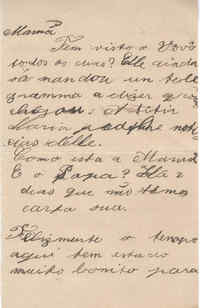 Mamã
Tem visto o Vovô
todos os dias? Elle ainda
só mandou um tele
gramma a dizer que
chegou; A Titir
Maria pedilhe noti
cias delle.
Como esta a Mamã
E o Papa? Há
dias que não temos
carta sua.
Felizmente o tempo
aqui tem estado
muito bonito para